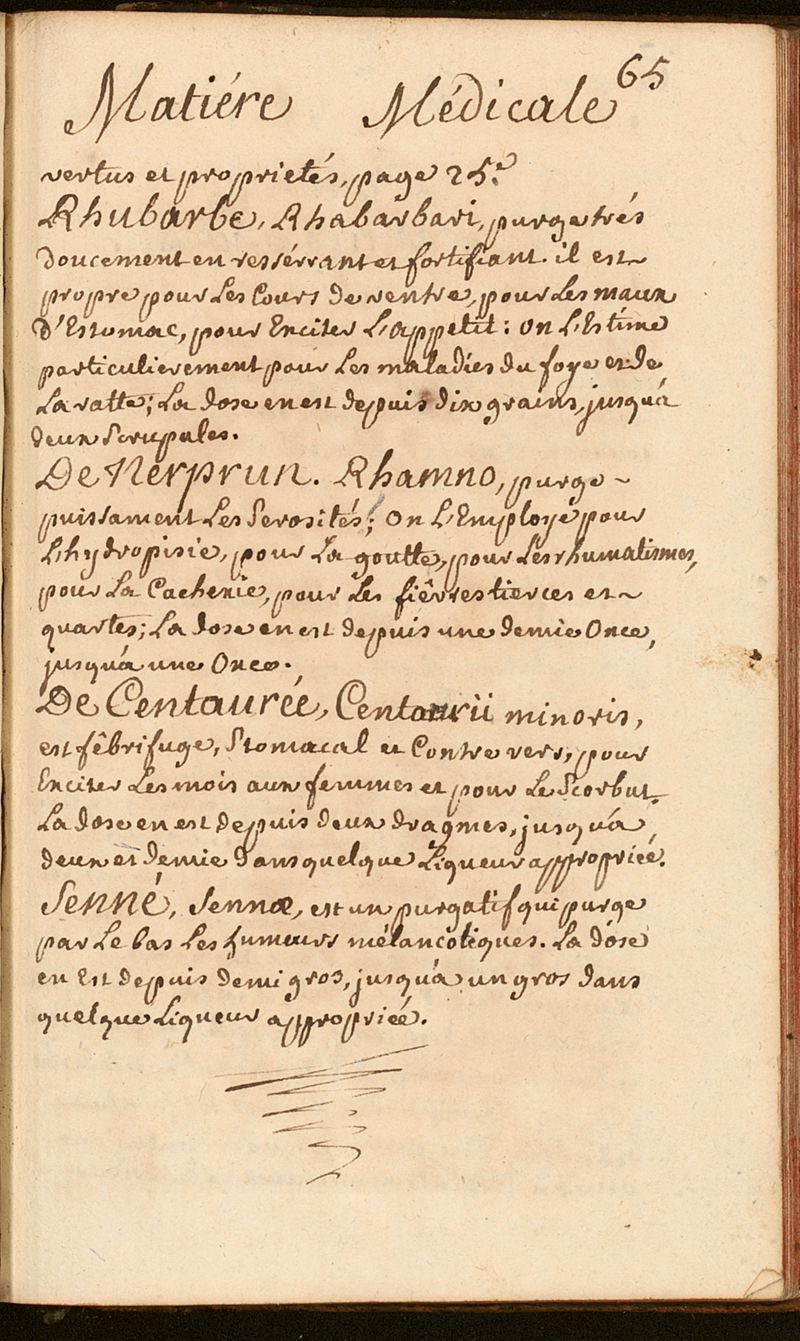 65
Matiére Médicale
vertus et proprietés, page 25.e
Rhubarbe, Rhabarbari, purge trés
doucement en resserrant et fortifiant. il est
propre pour Les Cours de ventre, pour Les maux
d'Estomac, pour Exciter L'appetit: On L'Estime
particulierement pour Les maladies du foye et de
La ratte; La dose en est depuis dix grains, jusqu'a
deux Scrupules.
De Nerprun. Rhamno, purge
puissament Les Serosités; On L'Employe pour
L'hydropisie, pour La goutte, pour Les rhumatismes,
pour La Cachexie, pour Les fiévres tierces et
quartes; La dose en est depuis une demie Once,
jusqu'a une Once.
De Centaurée, Centaurii minoris,
est fêbrifuge, Stomacal et Contre vers, pour
Exciter Les mois aux femmes et pour Le Scorbut.
La dose en est depuis deux dragmes, jusqu'a
deux et demie dans quelque Liqueur appropriée.
Senné, Sennæ, est un purgatif qui purge
par Le bas Les humeurs mélancoliques. La dose
en Est depuis demi gros, jusqu'a un gros dans
quelque Liqueur appropriée.